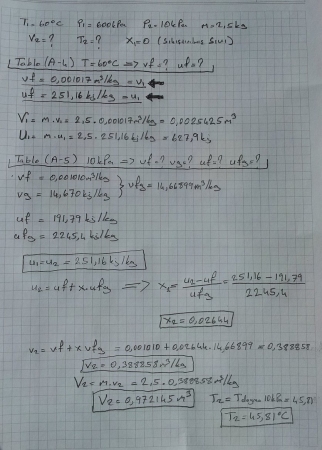 T₁=60°C P₁=600kPa P₂=10kPa m=2,5kg
V₂=? T₂=? X₁=0 (Sıkıştırılmış Sıvı)
Table (A-4) T=60°C => vf=? uf=?
vf = 0,001017m³/kg = v₁
uf = 251,16 kj/kg = u₁
V₁ = m.v₁ = 2,5.0,001017m³/kg = 0,0025425m³
U₁ = m.u₁ = 2,5.251,16kj/kg = 627,9kj
Table (A-5) 10kPa => vf=? vg=? uf=? ufg=?
vf = 0,001010m³/kg
vg = 14,670kj/kg } vfg = 14,66899m³/kg
uf = 191,79 kj/kg
ufg = 2245,4 kj/kg
u₁=u₂ = 251,16kj/kg
u₂ = uf + x.ufg => x₂ = u₂-uf / ufg = 251,16 - 191,79 / 2245,4
x₂ = 0,02644
v₂ = vf + x vfg = 0,001010 + 0,02644.14,66899 = 0,388858
v₂ = 0,388858m³/kg
V₂ = m.v₂ = 2,5.0,388858m³/kg
V₂ = 0,972145m³ T₂ = Tdoyma 10kPa = 45,81
T₂ = 45,81°C